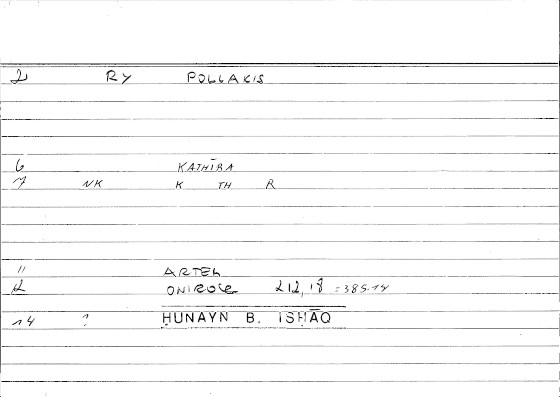 2 RY POLLAKIS
6 KATHĪRA
7 NK K TH R
11 ARTEM
12 ONIROCR 212, 18 = 385.14
14 ? ḤUNAYN B. ISḤĀQ